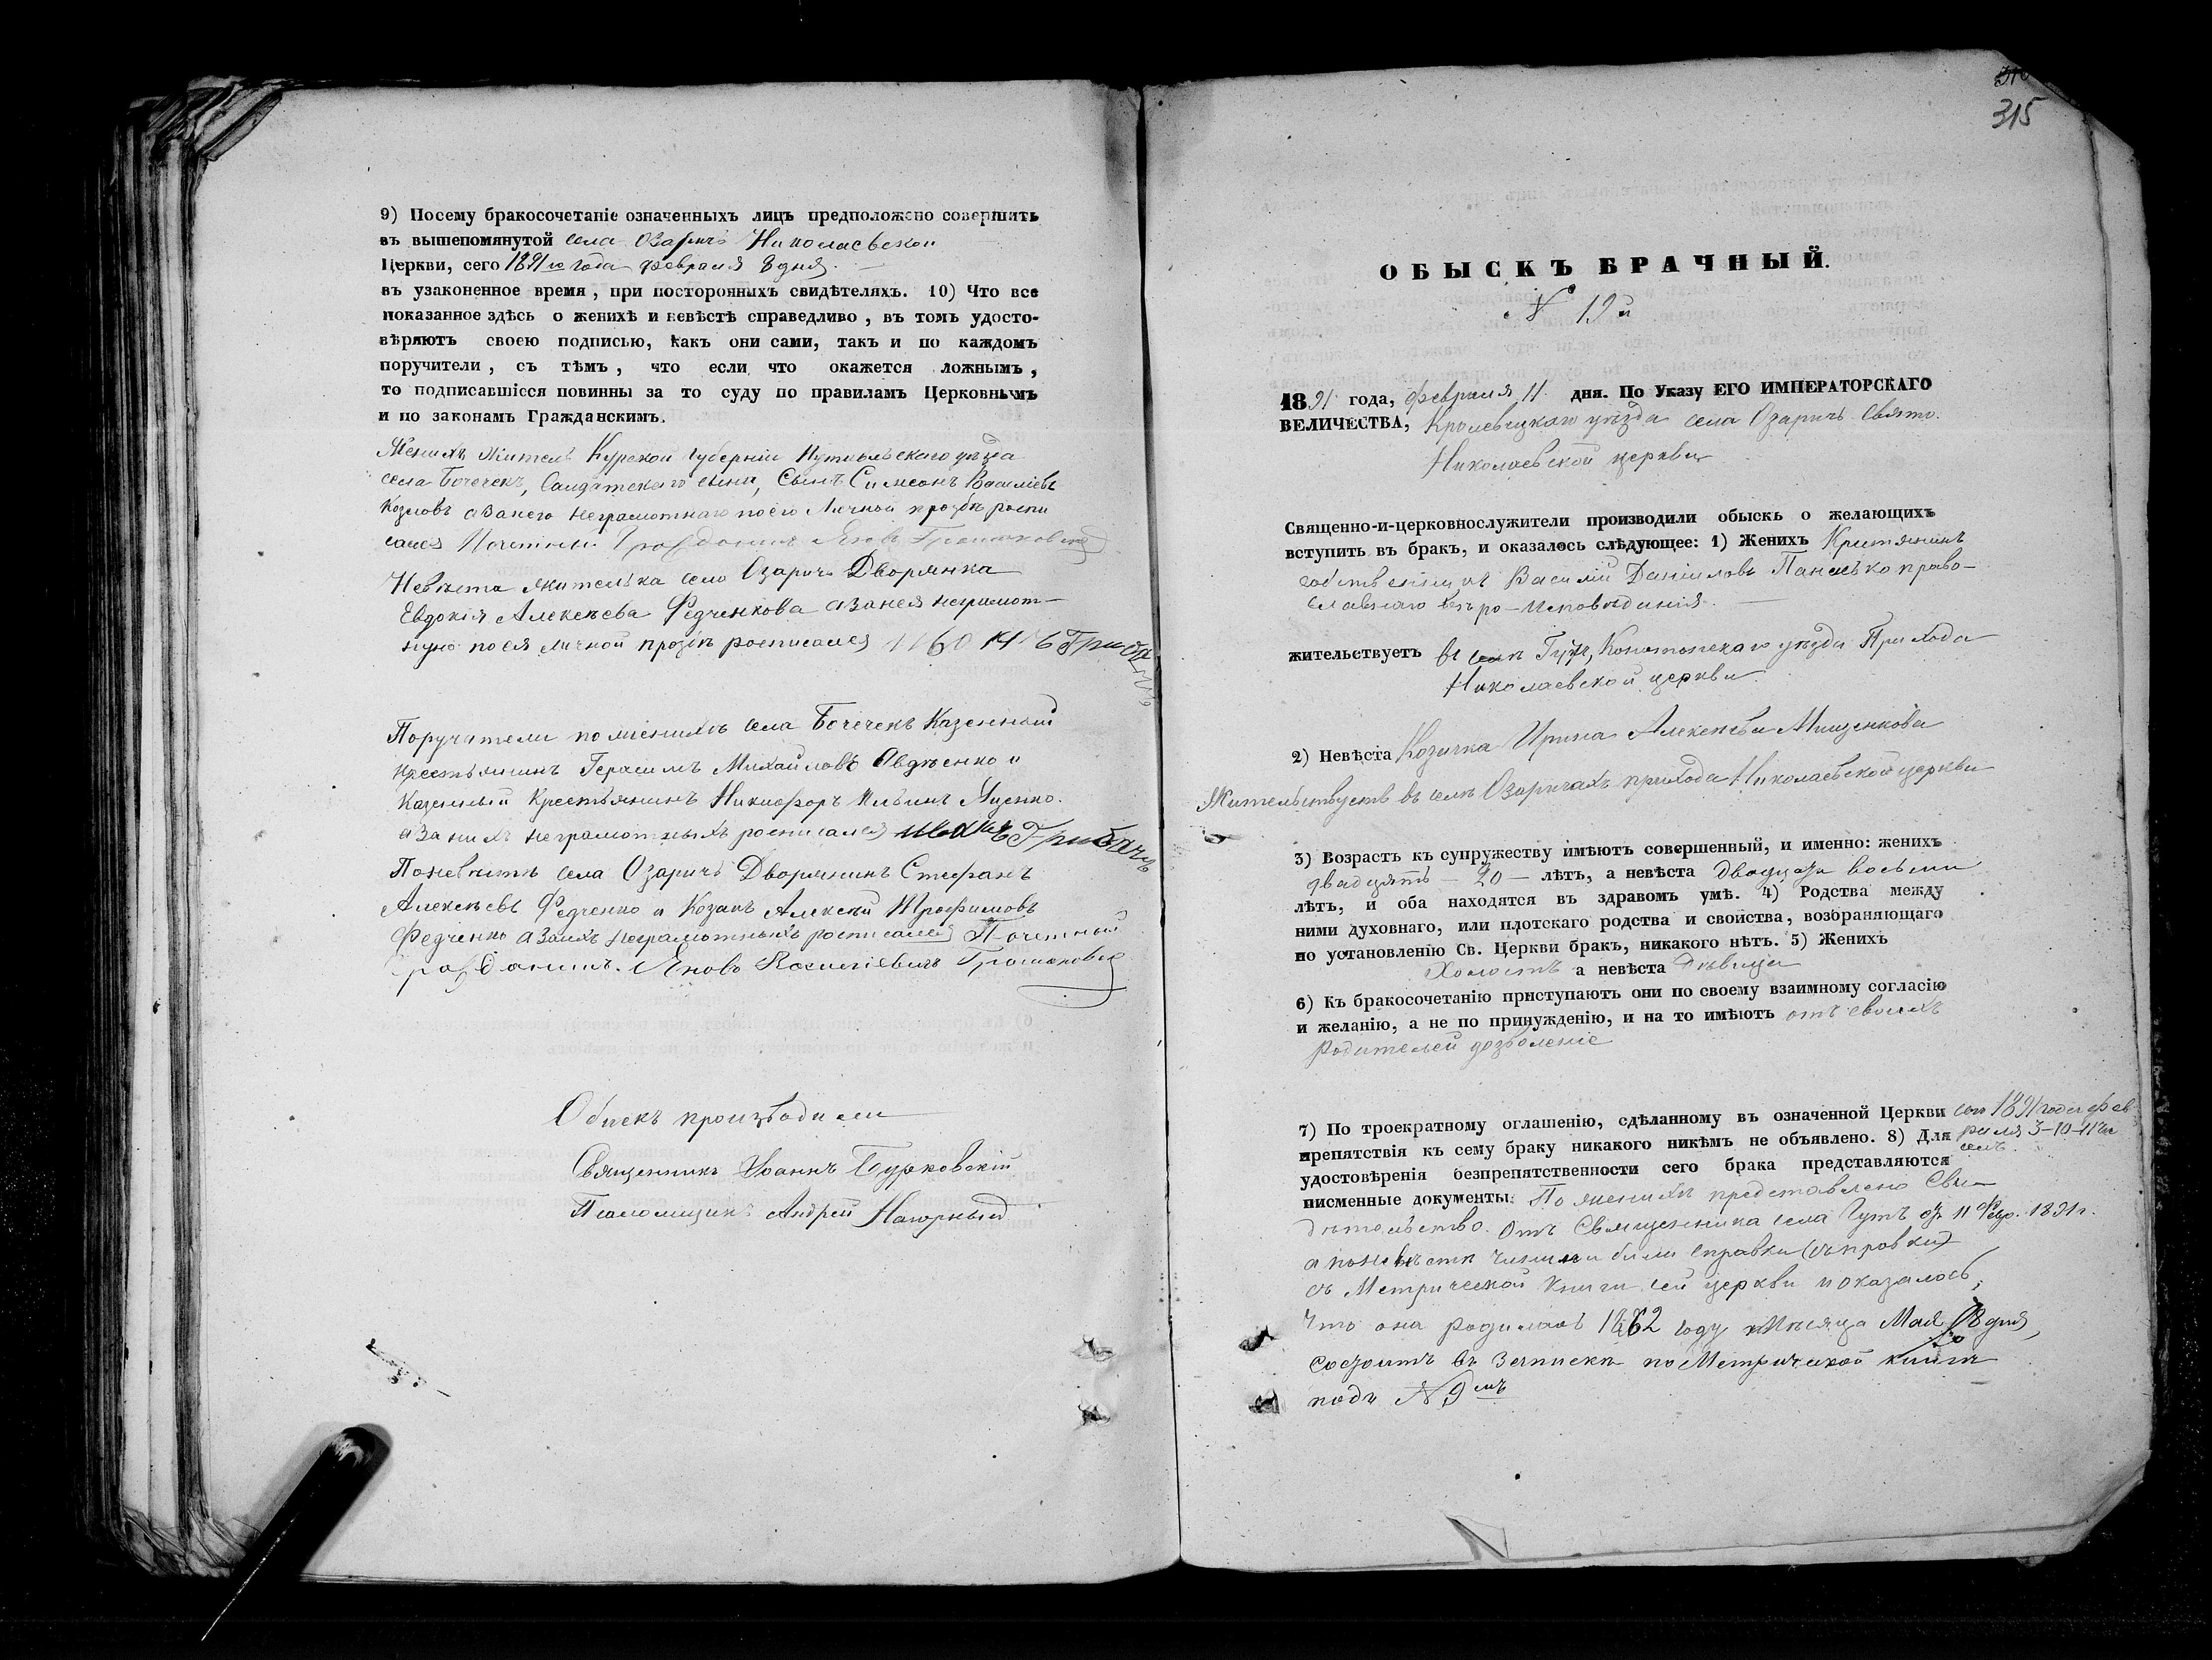 9) Посему бракосочетаніе означенныхъ лицъ предположено совершить
въ вышепомянутой села Озаричъ Николаевской
Церкви, сего 1891 го года февраля 8 дня.
въ узаконенное время, при посторонныхъ свидѣтеляхъ. 10) Что все
показанное здѣсь о женихѣ и невѣстѣ справедливо, въ томъ удосто-
вѣряютъ своею подписью, какъ они сами, такъ и по каждомъ
поручители, съ тѣмъ, что если что окажется ложнымъ,
то подписавшіеся повинны за то суду по правиламъ Церковнымъ
и по законамъ Гражданскимъ.
Женихъ житель Курской губерніи Путивльскаго уѣзда
села Бочечекъ, Сынъ Симеонъ Василіевъ
Козловъ а за него неграмотнаго по его личной прозбѣ роспи
сался Почетный
Невѣста жителька села Озаричъ Дворянка
Евдокія Алексѣева Федченкова а за нея неграмот-
ную по ея личной прозбѣ росписался
Поручители по женихѣ села Бочечекъ Казенный
крестьянинъ Герасимъ Михайловъ Авдѣенко и
Казенный Крестьянинъ Никифоръ Яценко.
а за нихъ неграмотныхъ росписался
По невѣстѣ села Озаричъ Дворянинъ Стефанъ
Алексѣевъ Федченко и Козакъ Алексѣй Трофимовъ
Федченко а за ихъ неграмотныхъ росписался Почетный
Яковъ
Обыскъ производили
Священникъ Іоаннъ Бурковскій
Псаломщикъ Андрей Нагорный
315
ОБЫСКЪ БРАЧНЫЙ.
№ 12й
1891 года, февраля 11 дня. По Указу ЕГО ИМПЕРАТОРСКАГО
ВЕЛИЧЕСТВА, Кролевецкаго уѣзда села Озаричъ Свято-
Николаевской церкви
Священно-и-церковнослужители производили обыскъ о желающихъ
вступить въ бракъ, и оказалось слѣдующее: 1) Женихъ
Василій Даніиловъ Панасѣко право-
славнаго вѣро-исповѣданія.
жительствуетъ въ селѣ Конотопскаго уѣзда Прихода
Николаевской церкви
2) Невѣста Козачка Ирина Алексѣева Мищенкова
Жительствуетъ въ селѣ Озаричахъ прихода Николаевской церкви
3) Возрастъ къ супружеству имѣютъ совершенный, и именно: женихъ
двадцять - 20 - лѣтъ, а невѣста двадцати восьми
лѣтъ, и оба находятся въ здравомъ умѣ. 4) Родства между
ними духовнаго, или плотскаго родства и свойства, возбраняющаго
по установленію Св. Церкви бракъ, никакого нѣтъ. 5) Женихъ
Холостъ а невѣста Дѣвица
6) Къ бракосочетанію приступаютъ они по своему взаимному согласію
и желанію, а не по принужденію, и на то имѣютъ отъ своихъ
родителей дозволеніе
7) По троекратному оглашенію, сдѣланному въ означенной Церкви сего 1891 года фев-
раля 3-10-11
препятствія къ сему браку никакого никѣмъ не объявлено. 8) Для
удостовѣренія безпрепятственности сего брака представляются
писменные документы: По женихѣ представлено Сви-
дѣтельство отъ Священника села Гутъ отъ 11 Февр. 1891 г.
а по невѣстѣ чинили были справки
съ Метрической книги сей церкви и оказалось,
что она родилась 1862 году Мѣсяца Мая дня,
состоитъ въ запискѣ по Метрической книгѣ
подъ № 9 мъ